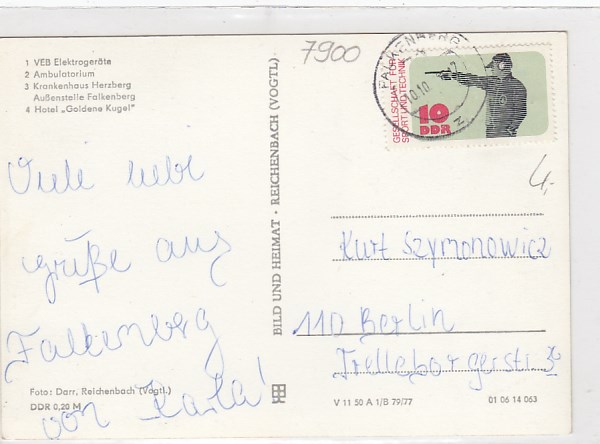 1 VEB Elektrogeräte
2 Ambulatorium
3 Krankenhaus Herzberg
Außenstelle Falkenberg
4 Hotel „Goldene Kugel"
7900
Viele liebe
grüße aus
Falkenberg
von Karla!
BILD UND HEIMAT • REICHENBACH (VOGTL)
FALKENBERG
10.10
GESELLSCHAFT FÜR
SPORT UND TECHNIK
10
DDR
4,-
Kurt Szymonowicz
110 Berlin
Trelleborgerstr. 3
Foto: Darr, Reichenbach (Vogtl.)
DDR 0,20 M
V 11 50 A 1/B 79/77
01 06 14 063